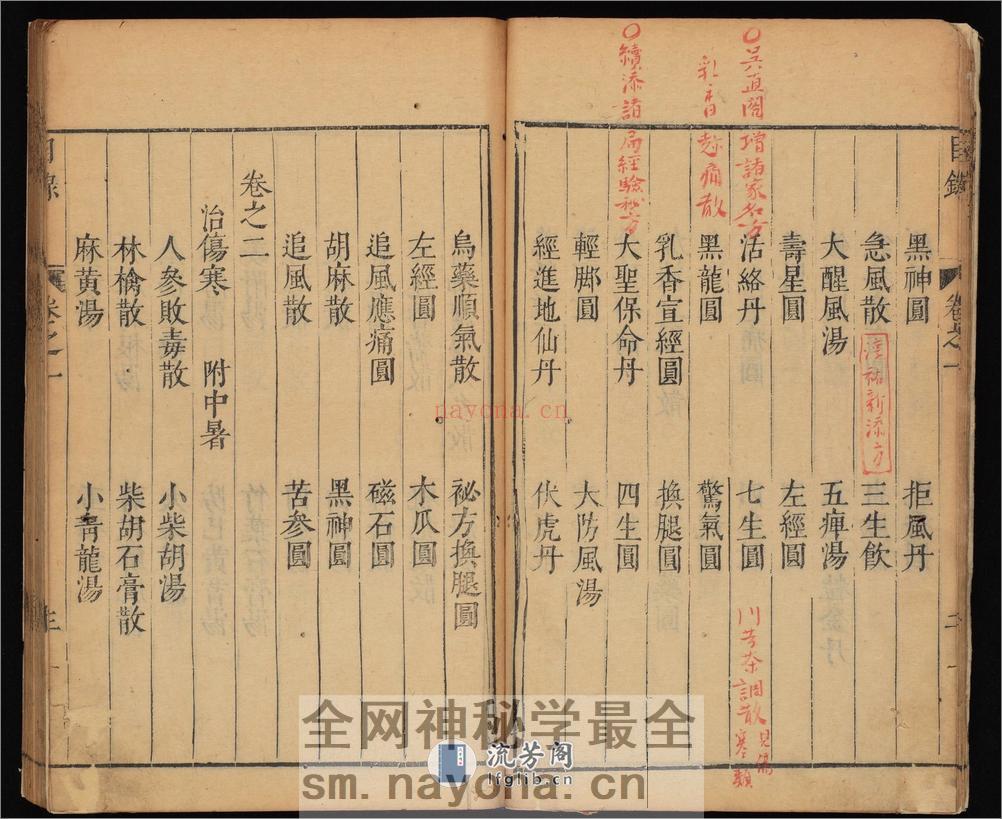 目錄
卷之一
二
黑神圓 拒風丹
急風散 三生飲
淳祐新添方
大醒風湯 五痺湯
壽星圓 左經圓
○吳直閣增諸家名方
活絡丹 七生圓
川芎茶調散見傷寒類
乳香趂痛散
黑龍圓 驚氣圓
乳香宣經圓 換腿圓
○續添諸局經驗秘方
大聖保命丹 四生圓
輕脚圓 大防風湯
經進地仙丹 伏虎丹
烏藥順氣散 祕方換腿圓
左經圓 木瓜圓
追風應痛圓 磁石圓
胡麻散 黑神圓
追風散 苦參圓
卷之二
治傷寒 附中暑
人參敗毒散 小柴胡湯
林檎散 柴胡石膏散
麻黃湯 小青龍湯
目錄
卷之一
nayona.cn
全网神秘学最全
流芳阁
lfglib.com
sm.nayona.cn